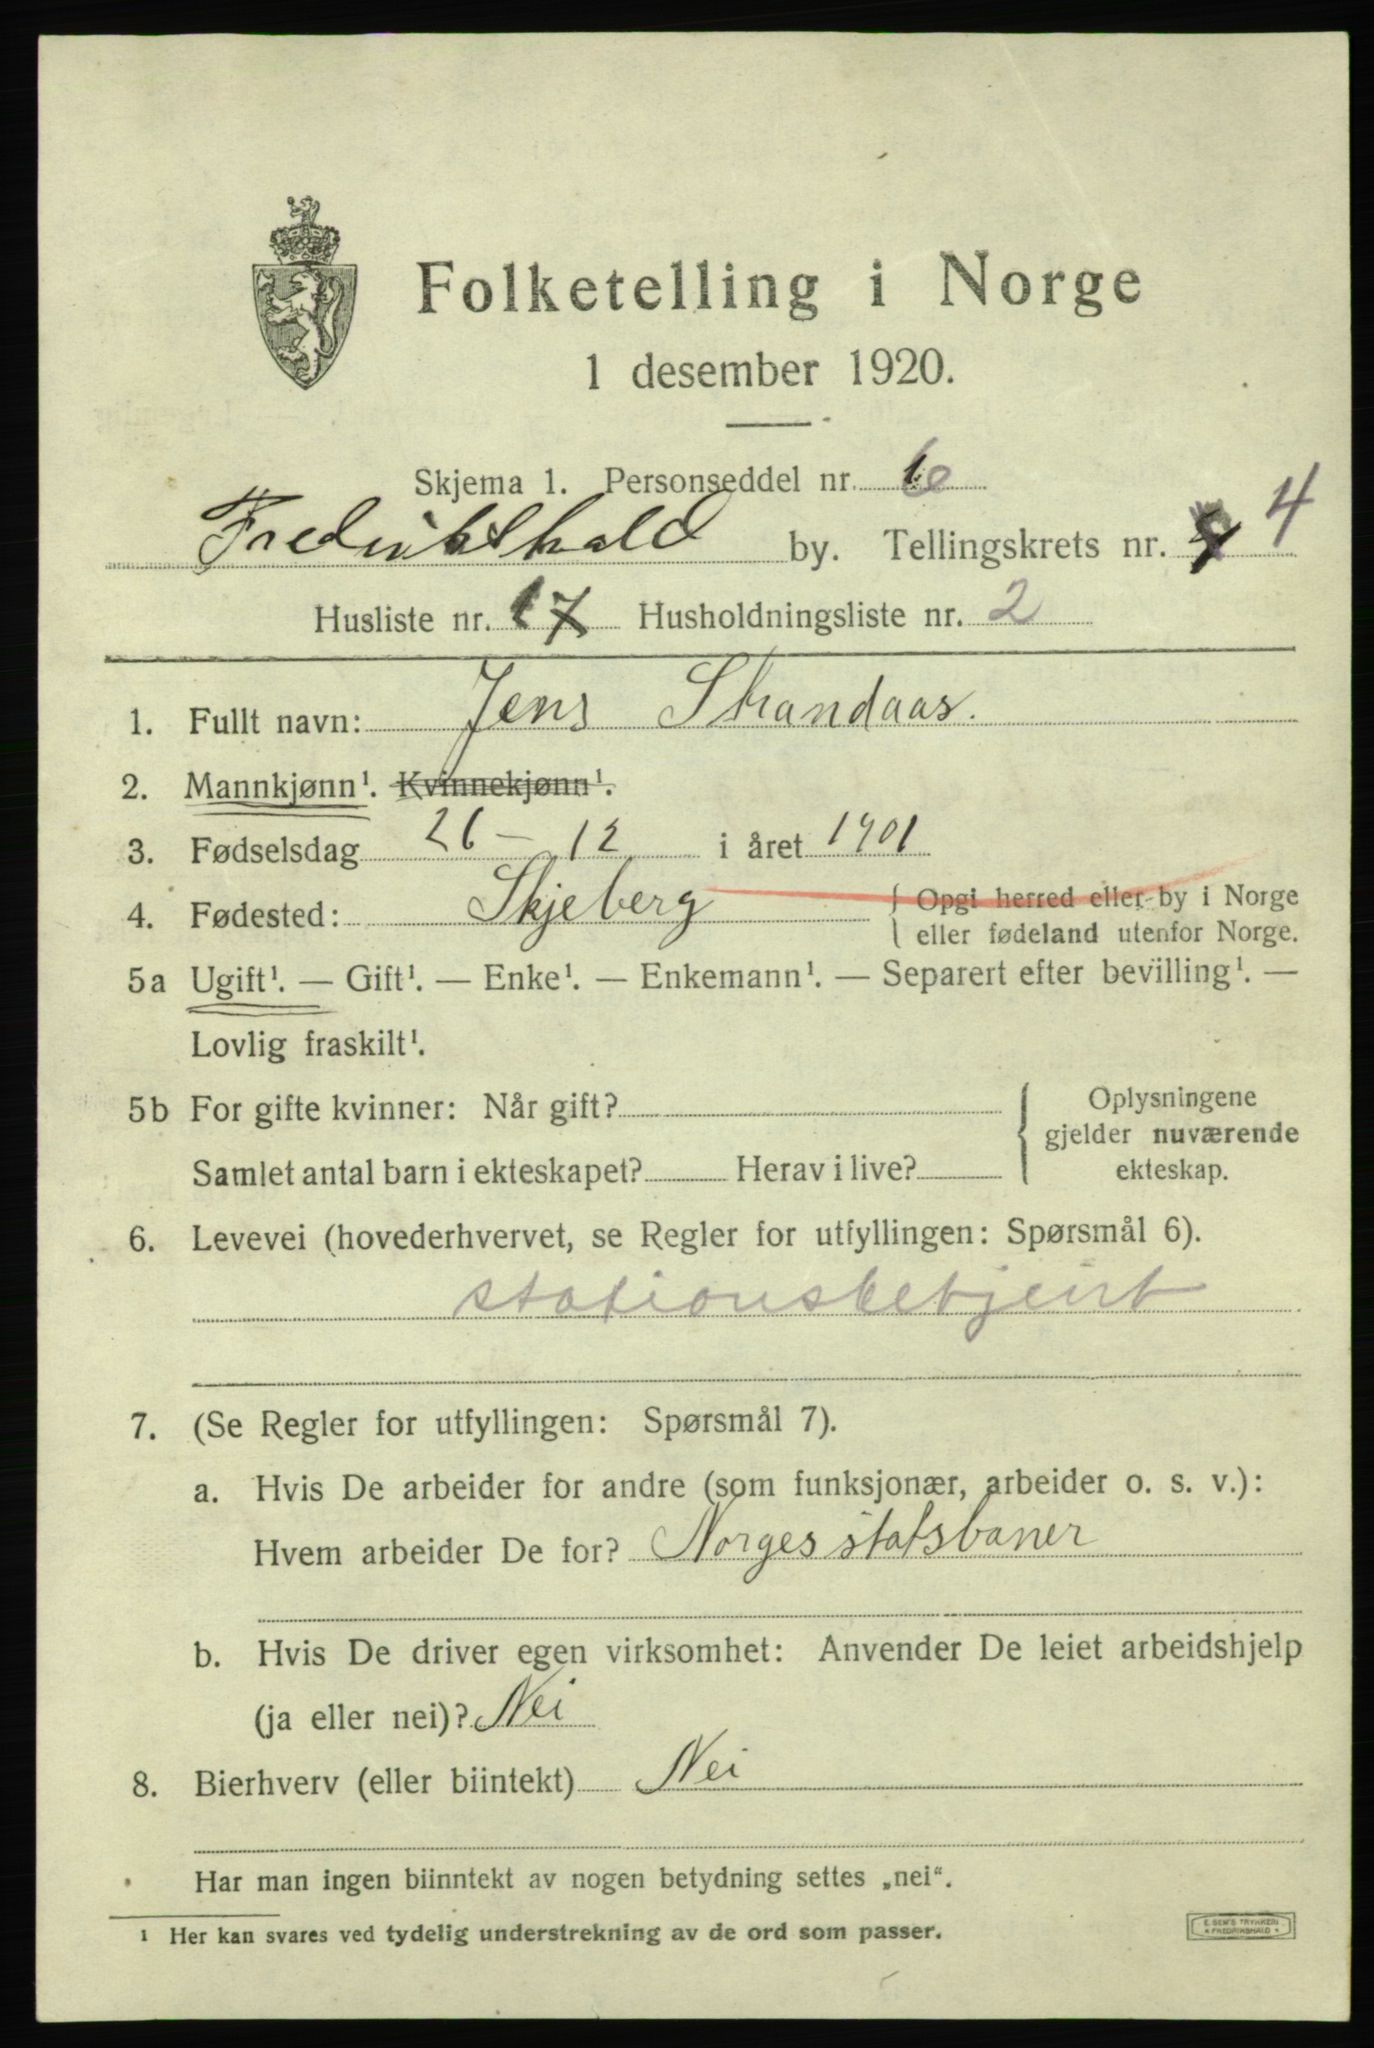 Folketelling i Norge
1 desember 1920.
Skjema 1. Personseddel nr. 6
Fredrikshald by. Tellingskrets nr. 4
Husliste nr. 17 Husholdningsliste nr. 2
1. Fullt navn: Jens Strandaas.
2. Mannkjønn¹. Kvinnekjønn¹.
3. Fødselsdag 26 – 12 i året 1901
4. Fødested: Skjeberg { Opgi herred eller by i Norge
eller fødeland utenfor Norge.
5a Ugift¹. — Gift¹. — Enke¹. — Enkemann¹. — Separert efter bevilling¹. —
Lovlig fraskilt¹.
5b For gifte kvinner: Når gift? { Oplysningene
gjelder nuværende
Samlet antal barn i ekteskapet? Herav i live? ekteskap.
6. Levevei (hovederhvervet, se Regler for utfyllingen: Spørsmål 6).
stationsbetjent
7. (Se Regler for utfyllingen: Spørsmål 7).
a. Hvis De arbeider for andre (som funksjonær, arbeider o. s. v.):
Hvem arbeider De for? Norges statsbaner
b. Hvis De driver egen virksomhet: Anvender De leiet arbeidshjelp
(ja eller nei)? Nei
8. Bierhverv (eller biintekt) Nei
Har man ingen biinntekt av nogen betydning settes „nei“.
¹ Her kan svares ved tydelig understrekning av de ord som passer.
E. SEM'S TRYKKERI
• FREDRIKSHALD •